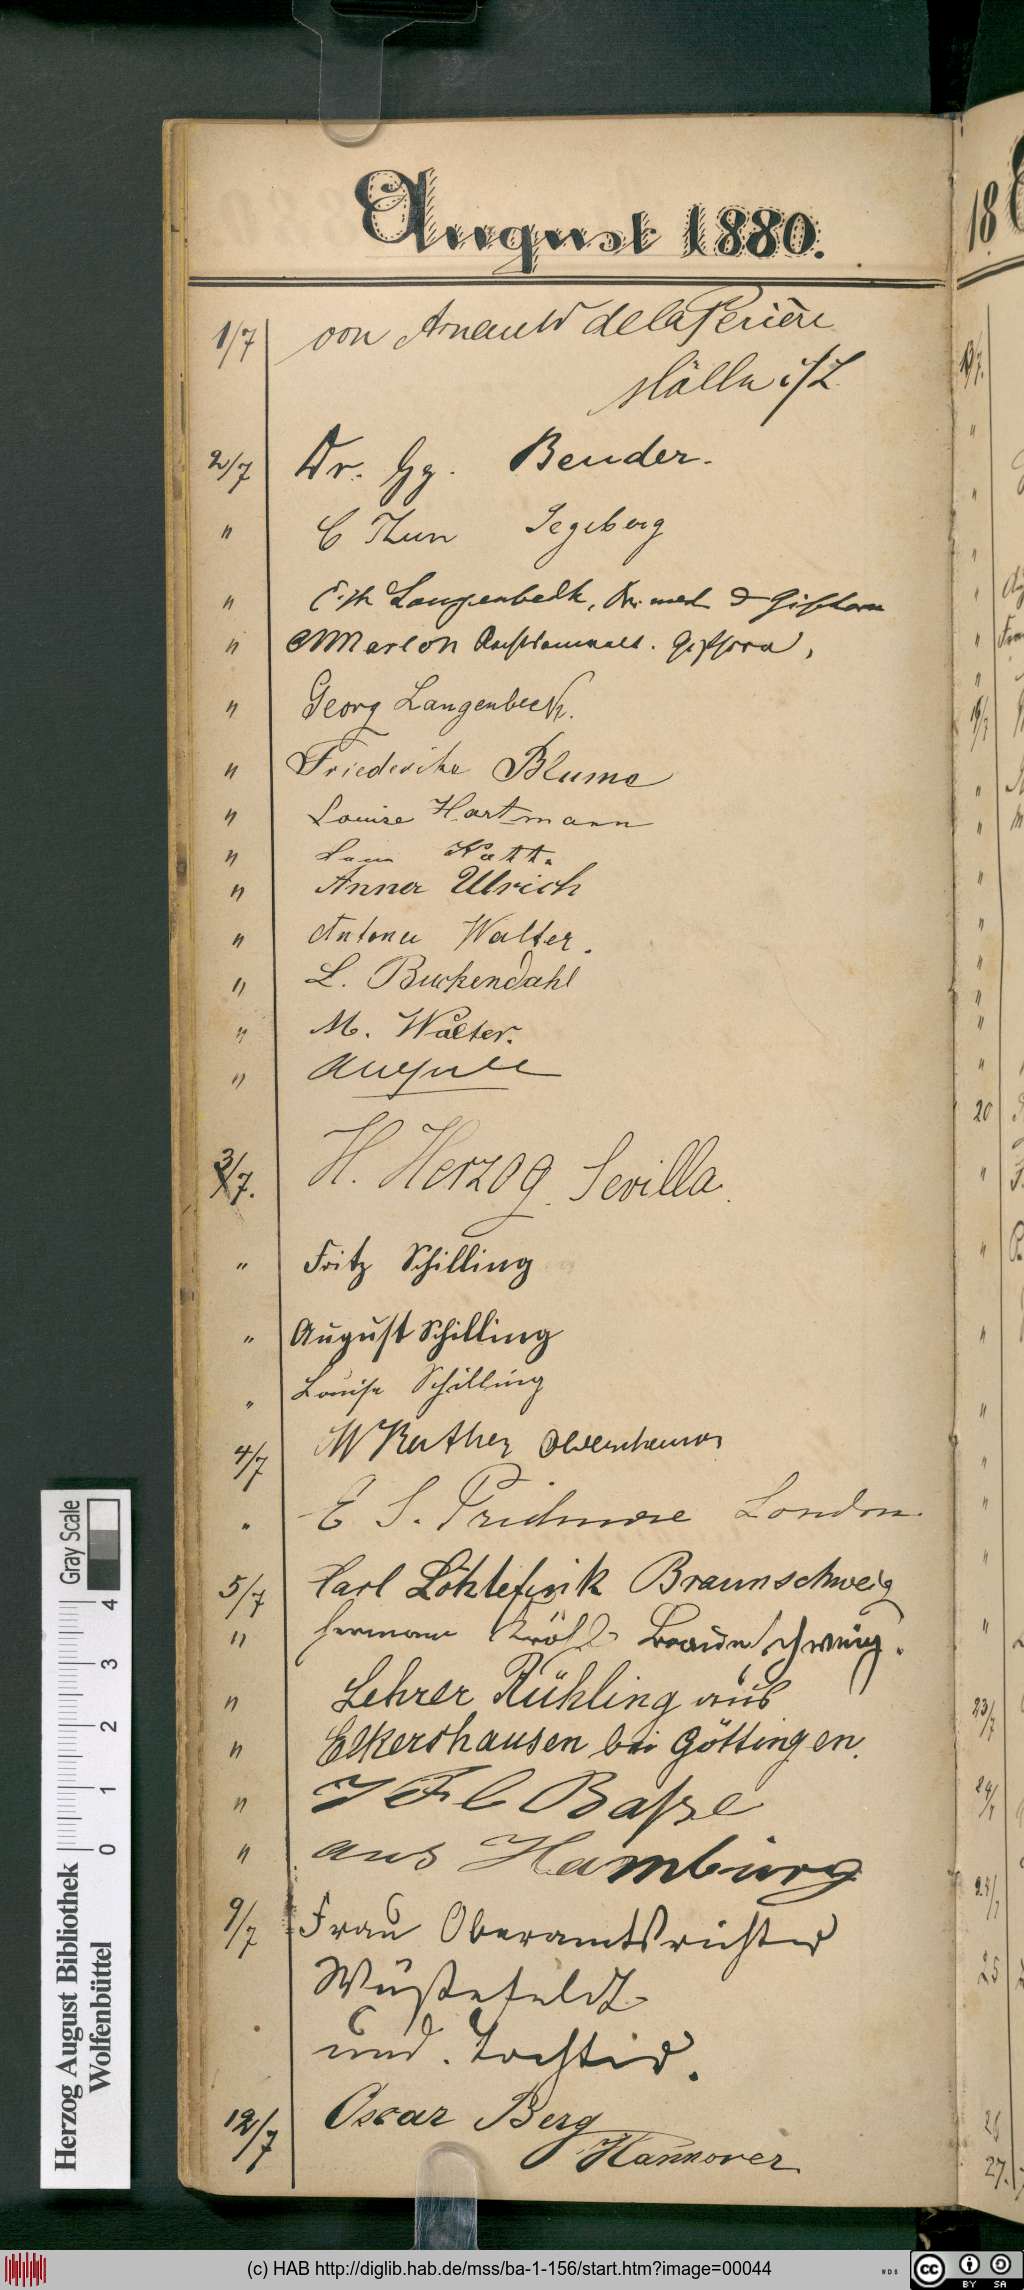 August 1880.
1/7 von Arnauld de la Perière
Mölln i/L
2/7 Dr. Gg. Bender.
" C Thun Segeberg
" Langenbeck, Dr. med Gifhorn
" Rechtsanwalt. Gifhorn,
" Georg Langenbeck.
" Friederike Blume
" Louise Hartmann
" 
" Anna Ulrich
" Antonie Walter.
" L. Buckendahl
" M. Walter.
" Auguste
3/7. H. Herzog. Sevilla.
" Fritz Schilling
" August Schilling
" Louise Schilling
4/7
" E S. Pridmore London.
5/7 Carl Löhlefink Braunschweig
" Hermann Kröhl Braunschweig.
" Lehrer Rühling aus
" Elkershausen bei Göttingen.
" Baßse
" aus Hamburg
9/7 Frau Oberamtsrichter
Wüstefeld
und Tochter.
12/7 Oscar Berg
Hannover
Herzog August Bibliothek
Wolfenbüttel
0 1 2 3 4
Gray Scale
18
20
23/7
24/7
25
26
27.
(c) HAB http://diglib.hab.de/mss/ba-1-156/start.htm?image=00044
WDB
cc BY SA